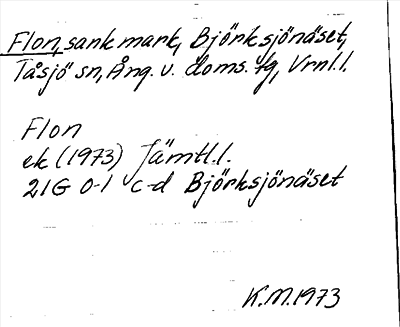 Flon, sank mark, Björksjönäset,
Tåsjö sn, Ång. v. doms. fg, Vrnl.l.
Flon
ek (1973) Jämtl.l.
21G 0-1 c-d Björksjönäset
K.M. 1973